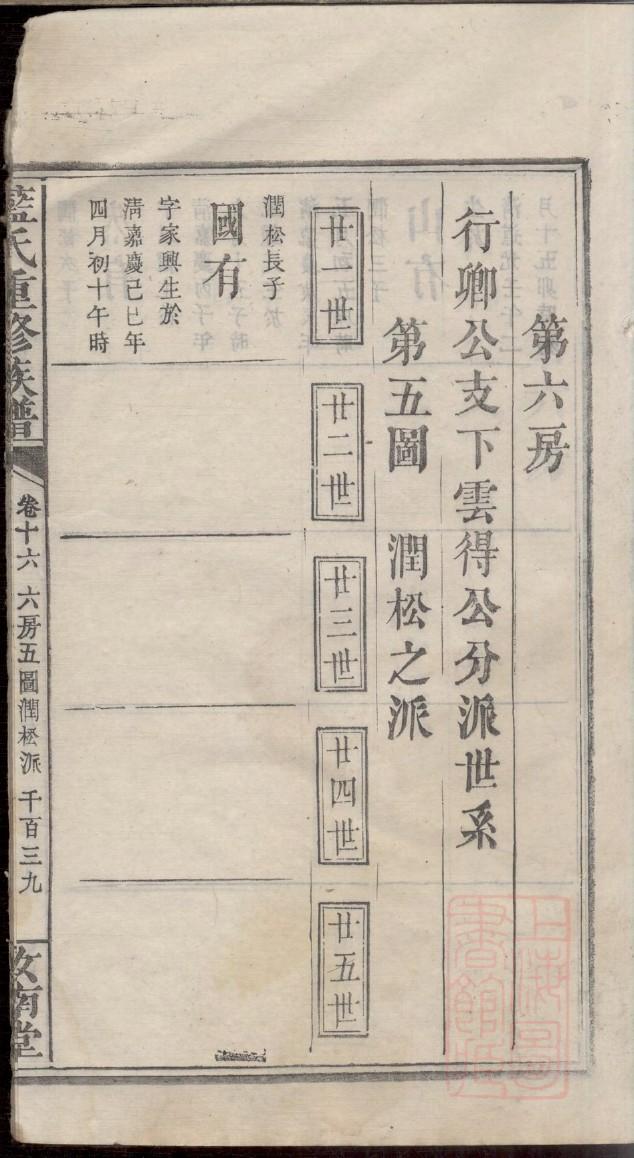 第六房
行卿公支下雲得公分派世系
第五圖 潤松之派
廿一世
廿二世
廿三世
廿四世
廿五世
潤松長子
國有
字家興生於
淸嘉慶己巳年
四月初十午時
藍氏重修族譜
卷十六 六房五圖潤松派 千百三九
汝南堂
上海圖書館藏